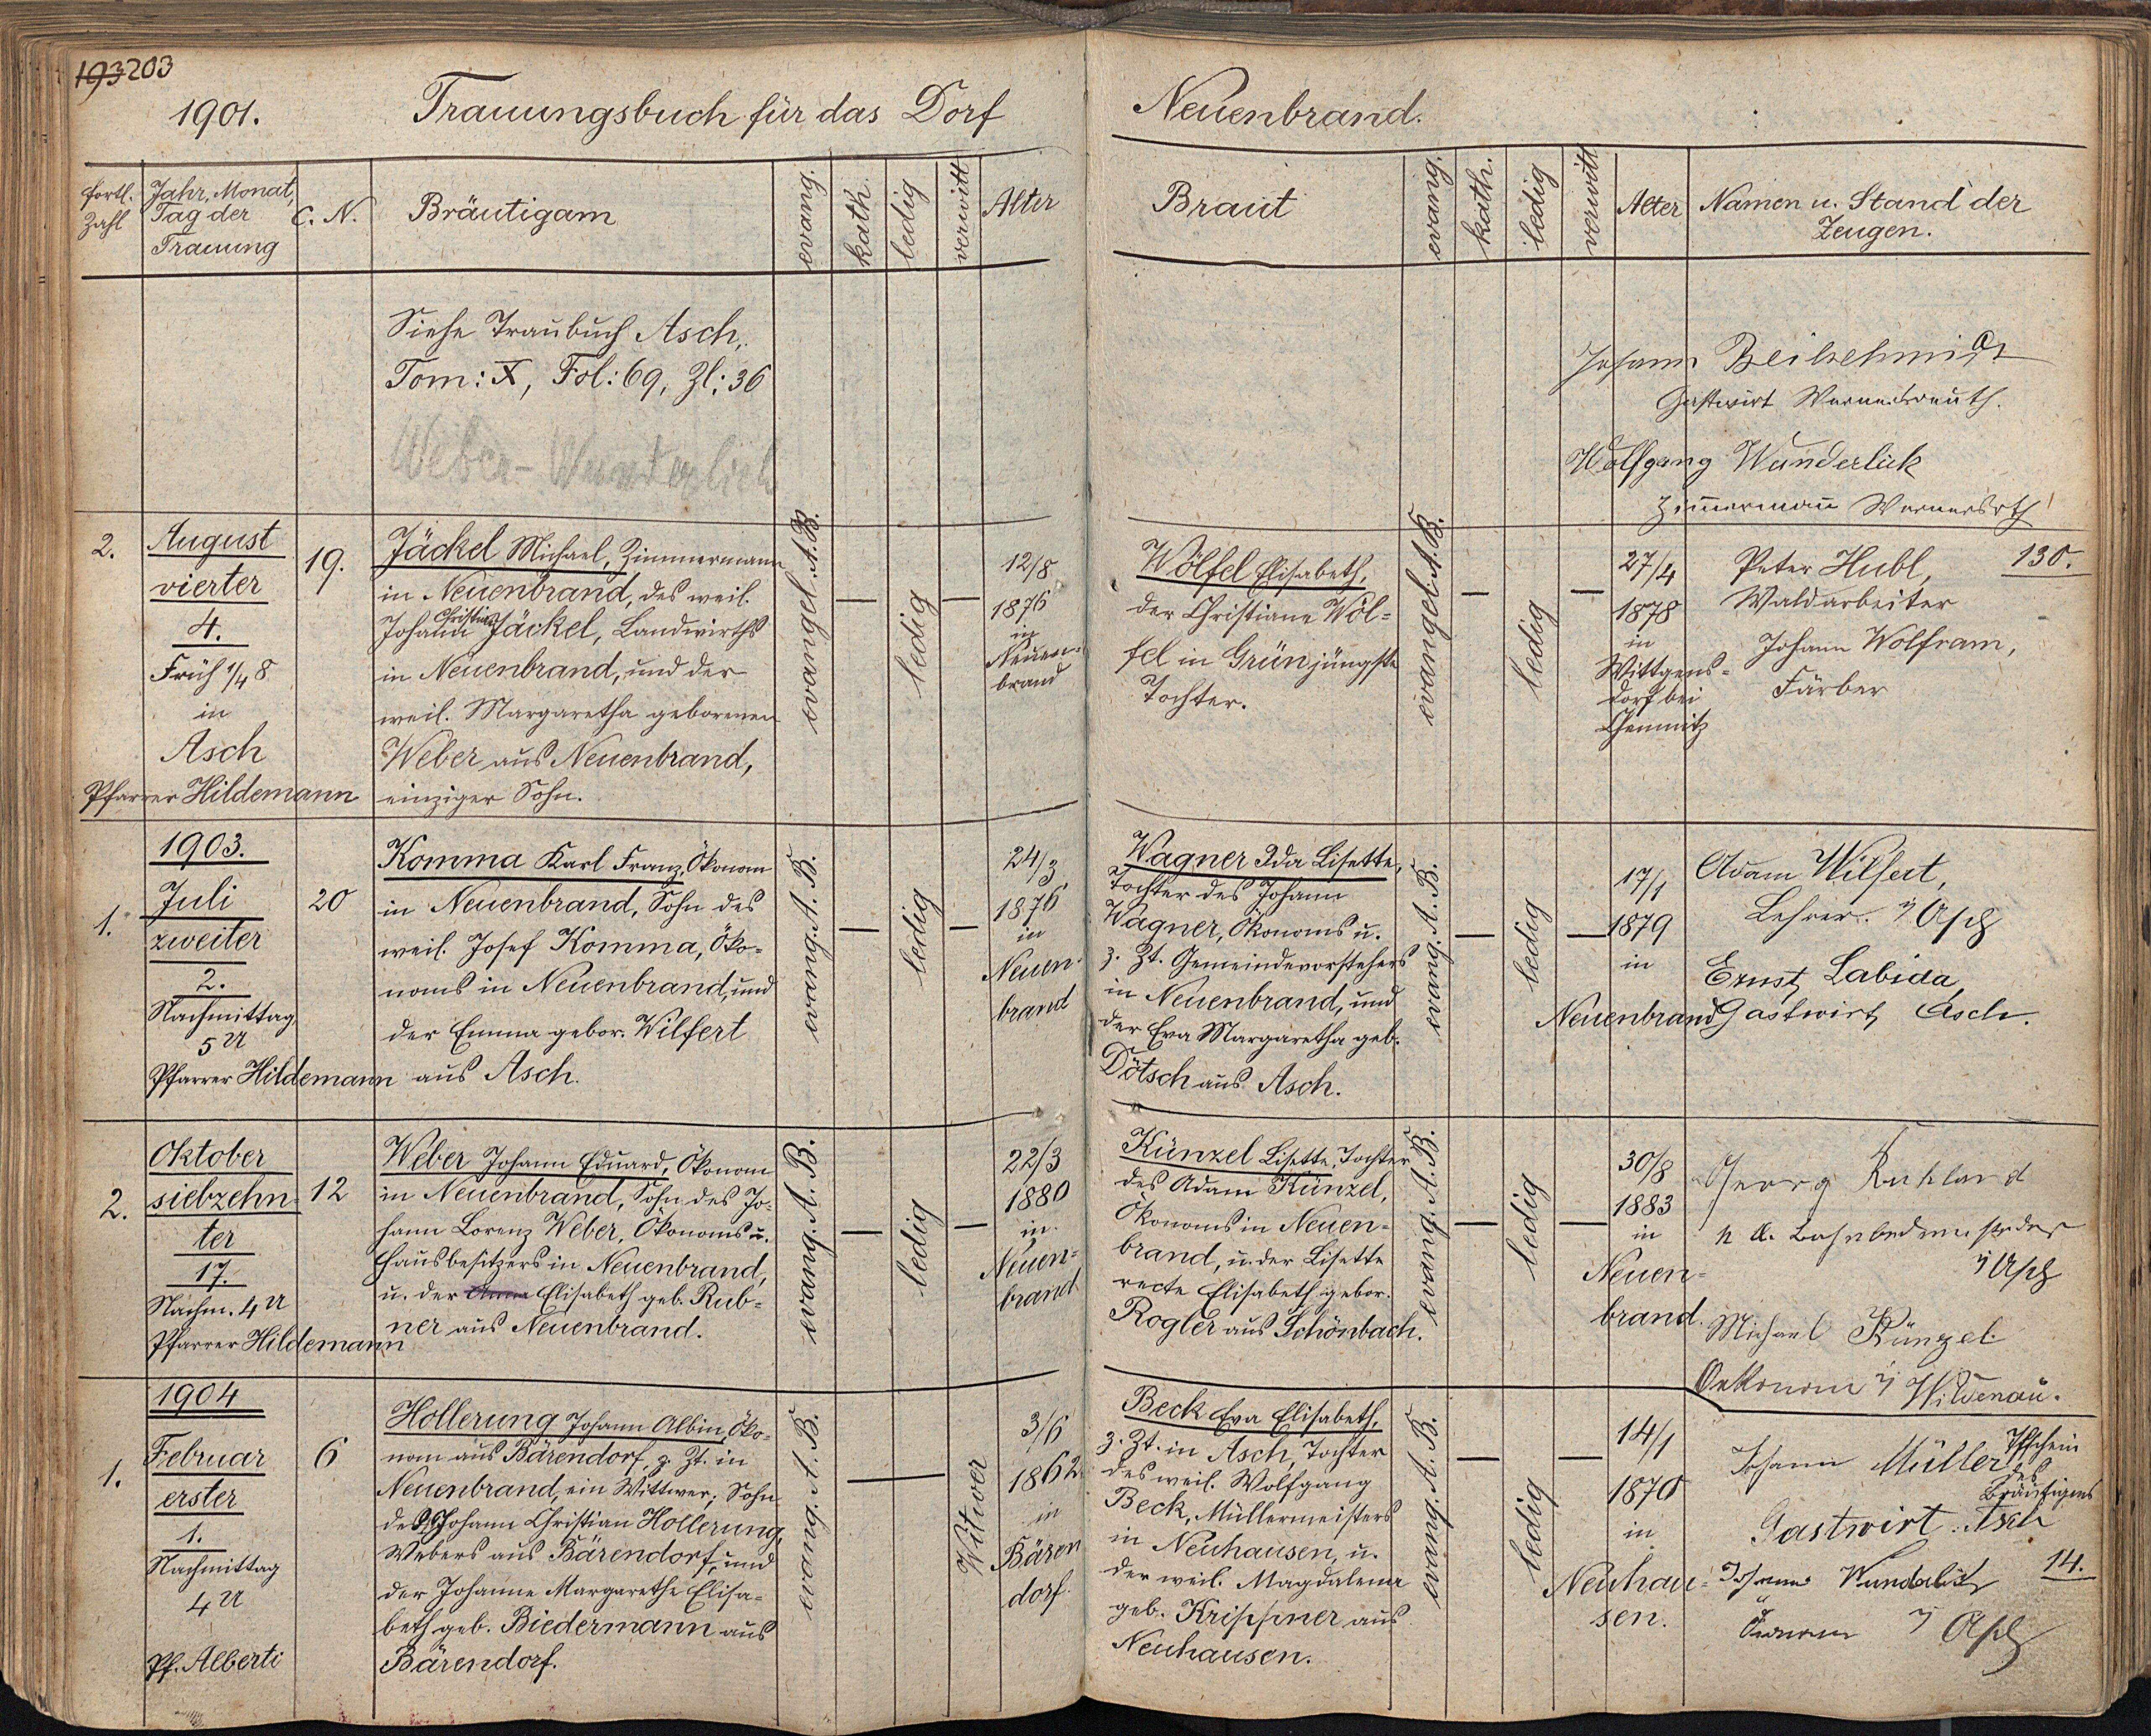 193 203
1901. Trauungsbuch für das Dorf Neuenbrand.
fortl. Zahl
Jahr, Monat,
Tag der
Trauung
C. N.
Bräutigam
evang.
kath.
ledig
verwitt
Alter
Braut
evang.
kath.
ledig
verwitt
Alter
Namen u. Stand der
Zeugen.
Siehe Traubuch Asch,
Tom: X, Fol: 69, Zl: 36
Weber - Wunderlich
Johann Beilschmidt
Gastwirt Wernersreuth.
Wolfgang Wunderlich
Zimmermann Wernersrth
2.
August
vierter
4.
Früh 1/4 8
in
Asch
Pfarrer Hildemann
19.
Jäckel Michael, Zimmermann
in Neuenbrand, des weil.
Johann Christian Jäckel, Landwirths
in Neuenbrand, und der
weil. Margaretha geborenen
Weber aus Neuenbrand,
einziger Sohn.
evangel. A. B.
—
ledig
—
12/8
1876
in
Neuen-
brand
Wölfel Elisabeth,
der Christiane Wöl-
fel in Grün jüngste
Tochter.
evangel. A. B.
—
ledig
—
27/4
1878
in
Wittgens-
dorf bei
Chemnitz
Peter Hubl, 130.
Waldarbeiter
Johann Wolfram,
Färber
1903.
1.
Juli
zweiter
2.
Nachmittag
5 U
Pfarrer Hildemann
20
Komma Karl Franz, Ökonom
in Neuenbrand, Sohn des
weil. Josef Komma, Öko-
noms in Neuenbrand, und
der Emma gebor. Wilfert
aus Asch.
evang. A. B.
—
ledig
—
24/3
1876
in
Neuen-
brand
Wagner Ida Lisette,
Tochter des Johann
Wagner, Ökonoms u.
z. Zt. Gemeindevorstehers
in Neuenbrand, und
der Eva Margaretha geb.
Dötsch aus Asch.
evang. A. B.
—
ledig
—
17/1
1879
in
Neuenbrand
Adam Wilfert,
Lehrer. i/ Asch
Ernst Labida,
Gastwirt, Asch.
2.
Oktober
siebzehn-
ter
17.
Nachm. 4 U
Pfarrer Hildemann
12
Weber Johann Eduard, Ökonom
in Neuenbrand, Sohn des Jo-
hann Lorenz Weber, Ökonoms u.
Hausbesitzers in Neuenbrand,
u. der Anna Elisabeth geb. Rub-
ner aus Neuenbrand.
evang. A. B.
—
ledig
—
22/3
1880
in
Neuen-
brand
Künzel Lisette, Tochter
des Adam Künzel,
Ökonoms in Neuen-
brand, u. der Lisette
recte Elisabeth gebor.
Rogler aus Schönbach.
evang. A. B.
—
ledig
—
30/8
1883
in
Neuen-
brand.
Georg Ruhland
i/ Asch
Michael Künzel
Oekonom i/ Wildenau.
1904
1.
Februar
erster
1.
Nachmittag
4 U
Pf. Alberti
6
Hollerung Johann Albin, Öko-
nom aus Bärendorf, z. Zt. in
Neuenbrand, ein Wittwer, Sohn
des Johann Christian Hollerung,
Webers aus Bärendorf, und
der Johanne Margarethe Elisa-
beth geb. Biedermann aus
Bärendorf.
evang. A. B.
—
Witwer
3/6
1862
in
Bären
dorf.
Beck Eva Elisabeth,
z. Zt. in Asch, Tochter
des weil. Wolfgang
Beck, Müllermeisters
in Neuhausen, u.
der weil. Magdalena
geb. Krippner aus
Neuhausen.
evang. A. B.
—
ledig
—
14/1
1870
in
Neuhau-
sen.
Johann Müller
des
Bräutigams
Gastwirt. Asch
Johann Wunderlich 14.
Ökonom i/ Asch